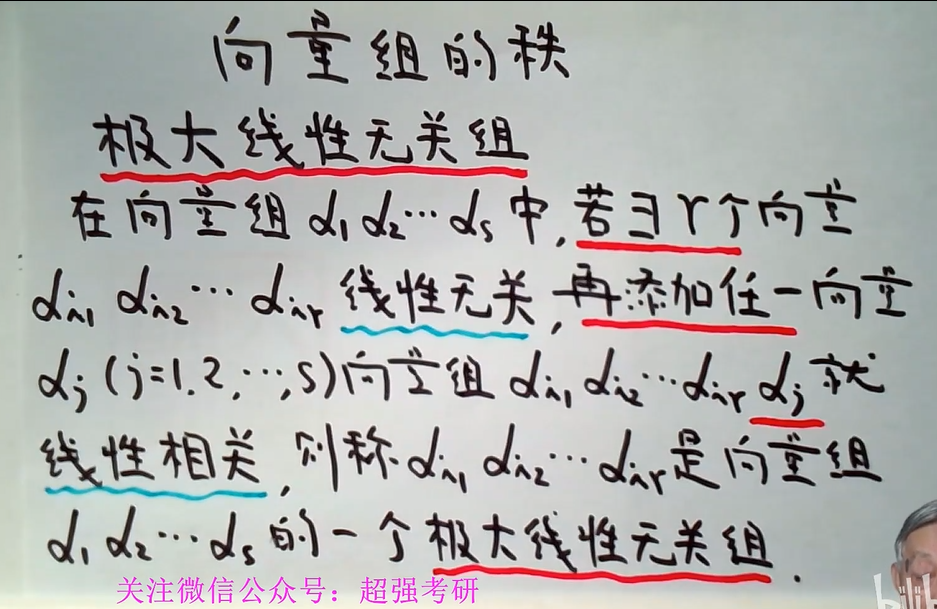 向量组的秩
极大线性无关组
在向量组 α₁ α₂ ⋯ αₛ 中, 若∃r个向量
αᵢ₁ αᵢ₂ ⋯ αᵢᵣ 线性无关, 再添加任一向量
αⱼ (j=1,2,⋯,s) 向量组 αᵢ₁ αᵢ₂ ⋯ αᵢᵣ αⱼ 就
线性相关, 则称 αᵢ₁ αᵢ₂ ⋯ αᵢᵣ 是向量组
α₁ α₂ ⋯ αₛ 的一个极大线性无关组.
关注微信公众号：超强考研
bilib